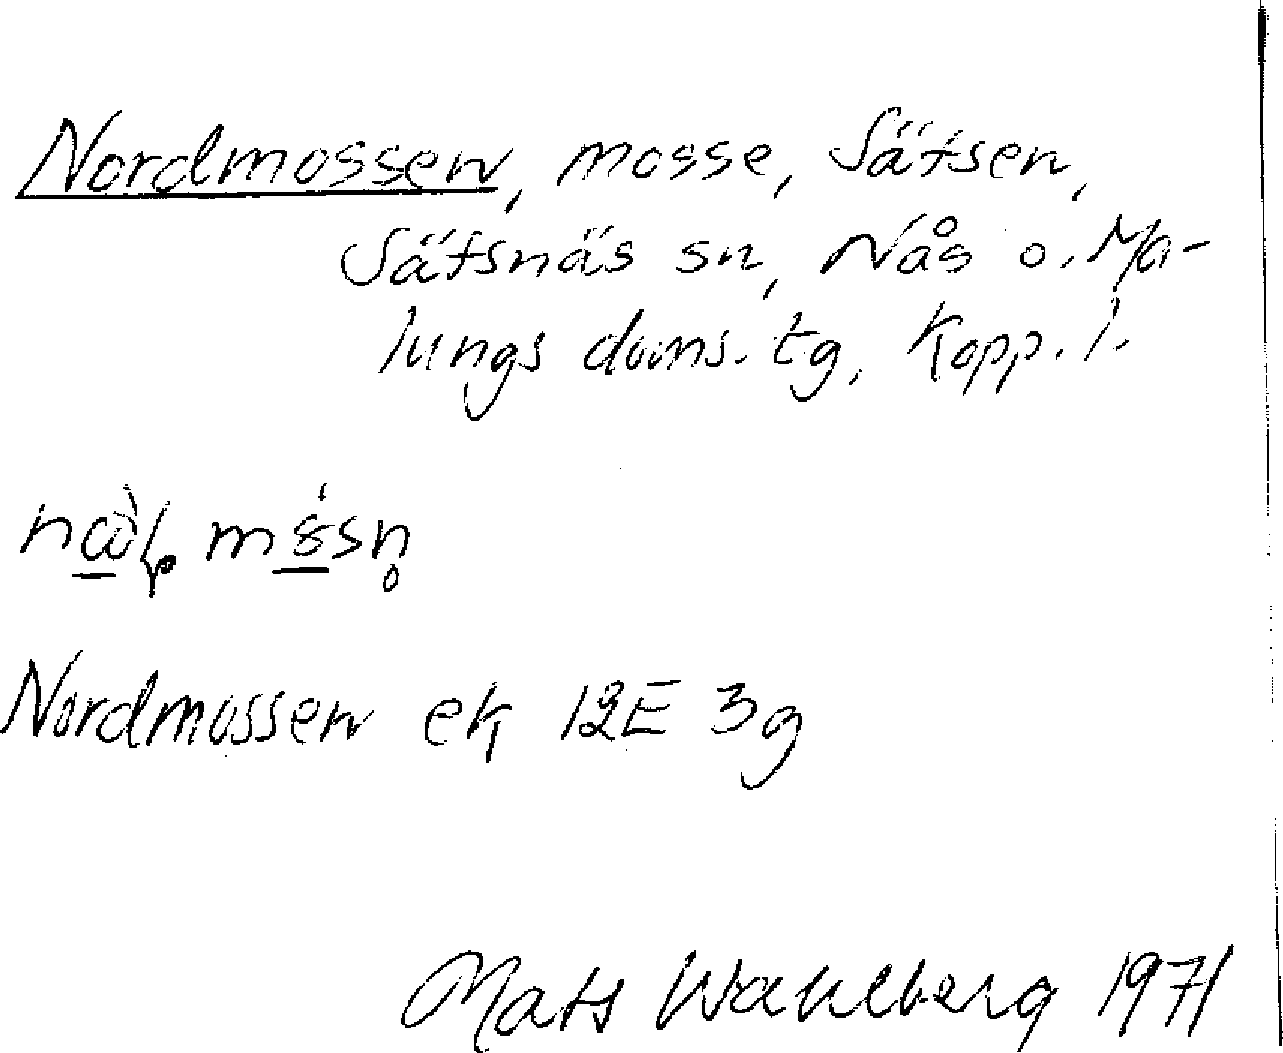 Nordmossen, mosse, Sätsen,
Sätsnäs sn, Nås o. Ma-
lungs doms. tg, Kopp. l.
Nordmossen ek 12E 3g
Mats Wahlberg 1971